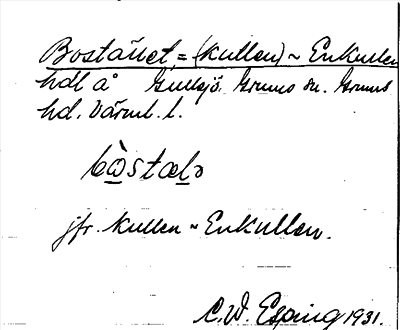 Bostället = (Kullen) ~ Enkullen
hdl å Gullsjö Grums sn. Grums
hd. Värml. l.
bo̲̊̀stæl̲ə
jfr. Kullen ~ Enkullen.
C. W. Esping 1931.